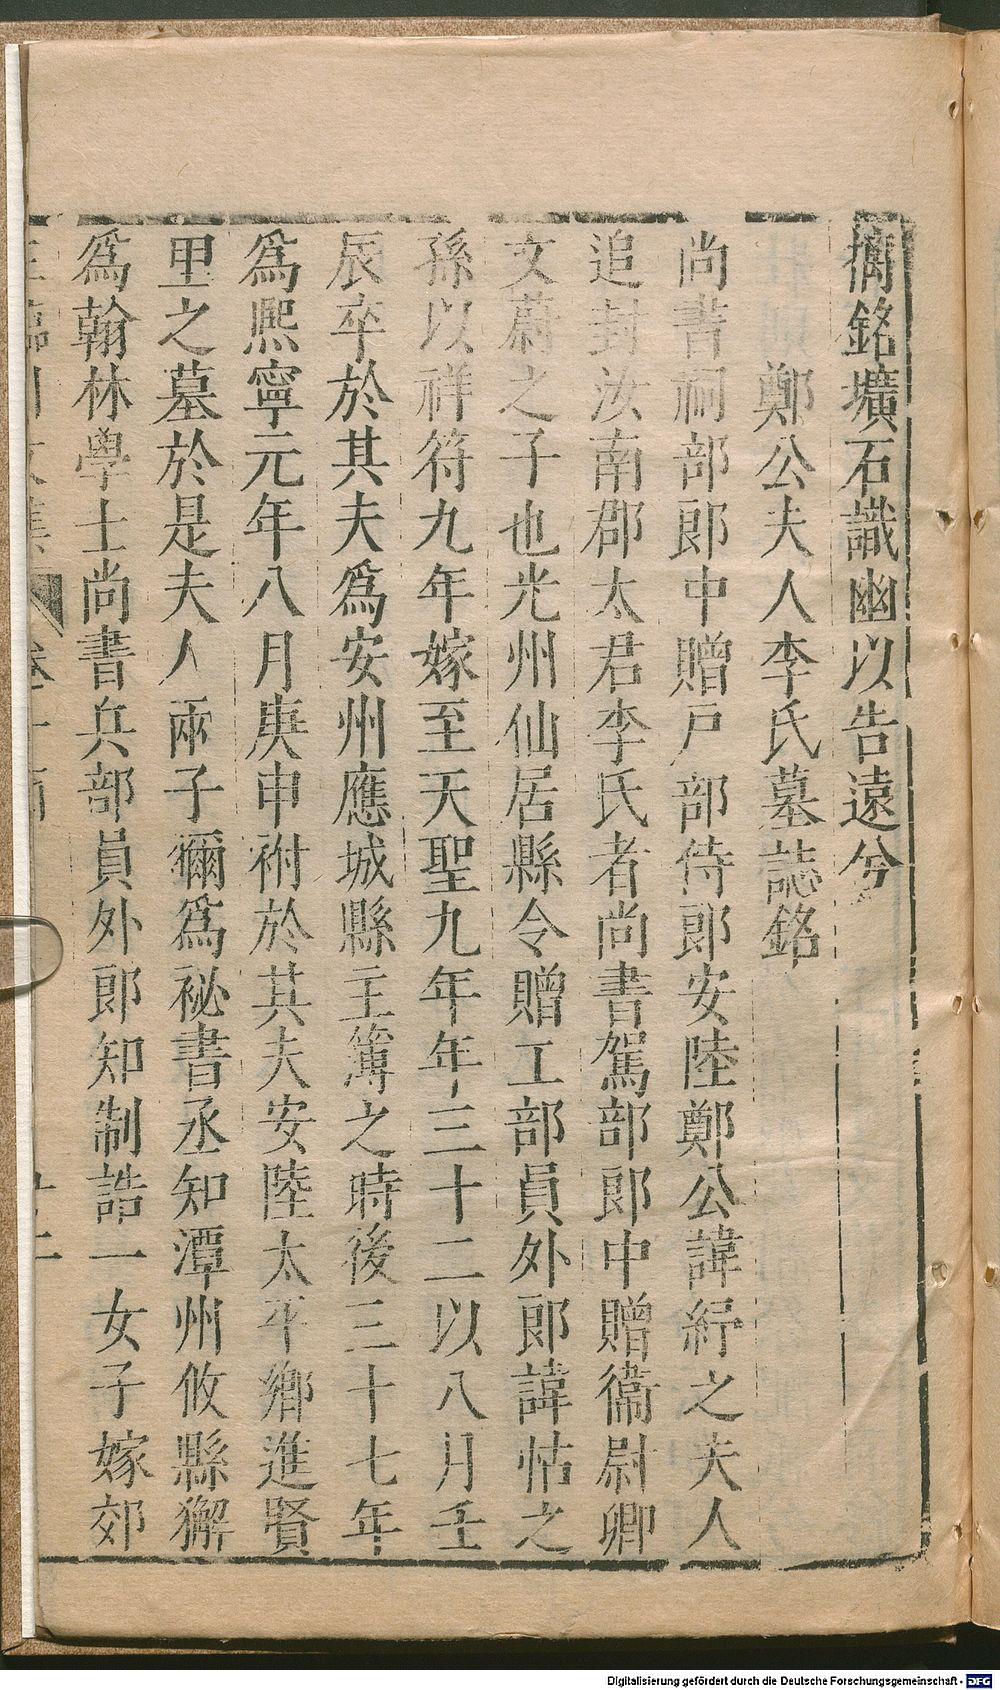 摛銘壙石識幽以告遠兮
鄭公夫人李氏墓誌銘
尚書祠部郎中贈戶部侍郎安陸鄭公諱紓之夫人
追封汝南郡太君李氏者尚書駕部郎中贈衞尉卿
文蔚之子也光州仙居縣令贈工部員外郎諱怙之
孫以祥符九年嫁至天聖九年年三十二以八月壬
辰卒於其夫爲安州應城縣主簿之時後三十七年
爲熙寧元年八月庚申祔於其夫安陸太平鄉進賢
里之墓於是夫人兩子獼爲祕書丞知潭州攸縣獬
爲翰林學士尚書兵部員外郎知制誥一女子嫁郊
Digitalisierung gefördert durch die Deutsche Forschungsgemeinschaft - DFG